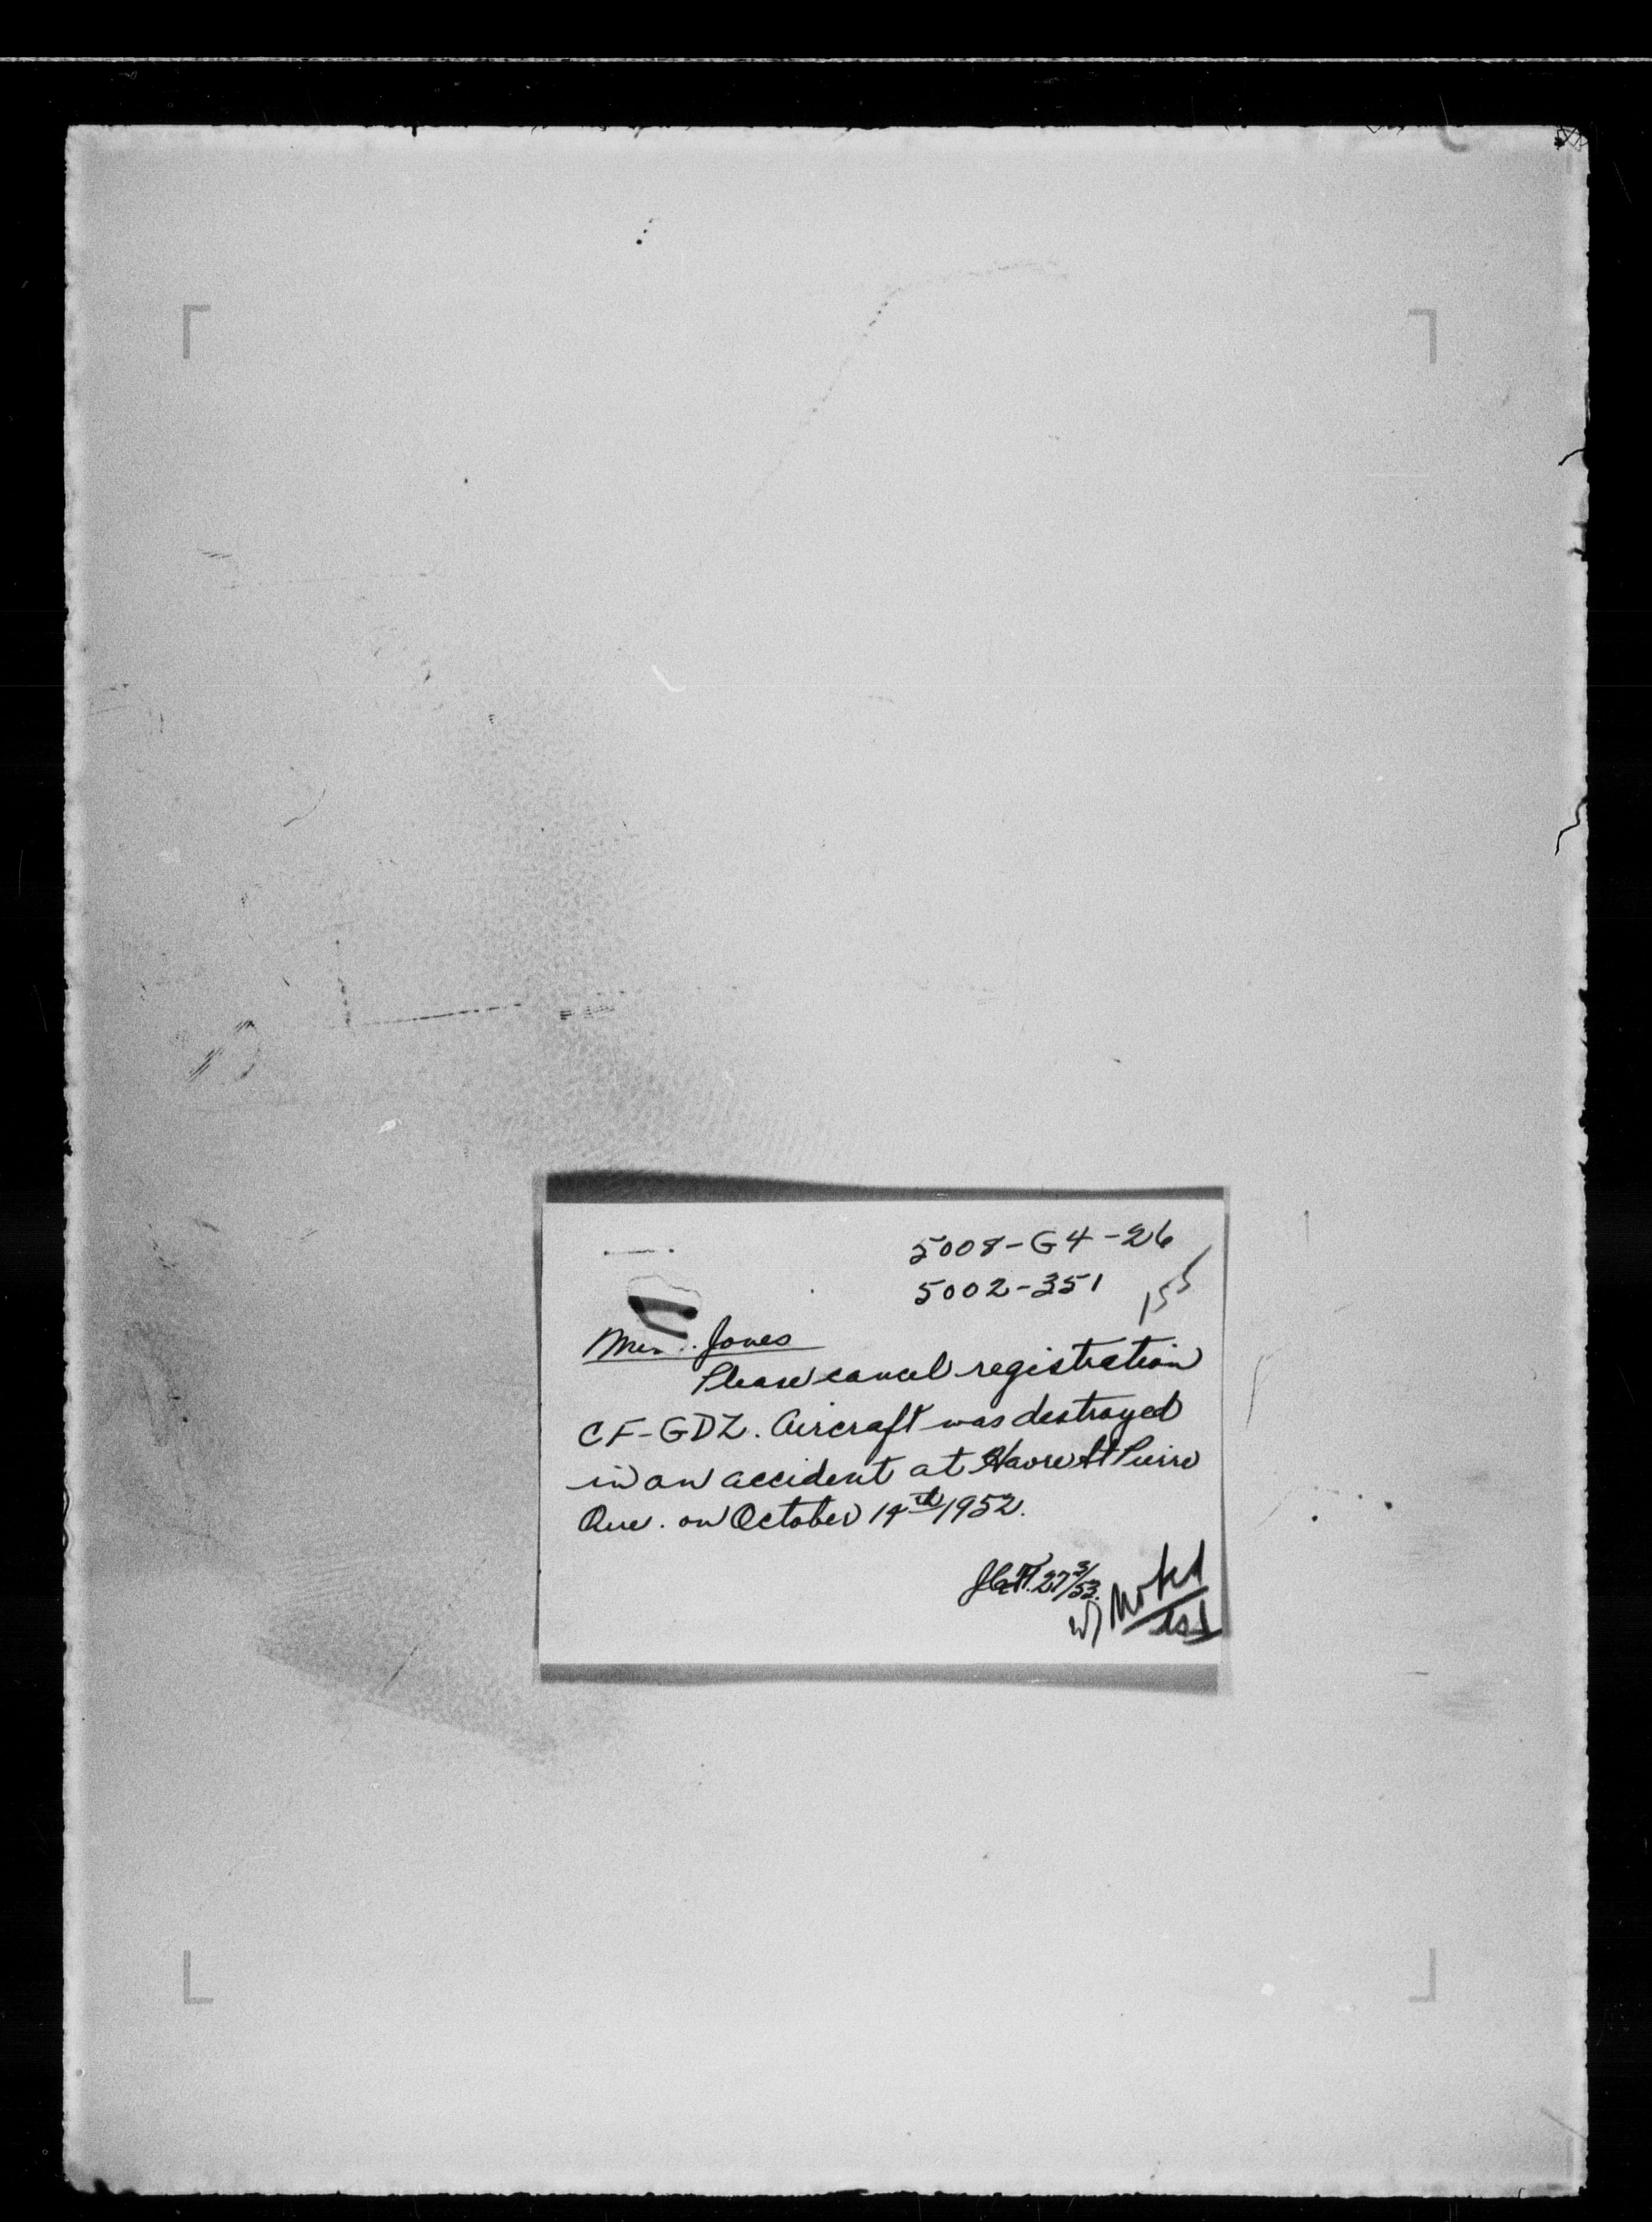 5008-G4-26
5002-351
155
Jones
Please cancel registration
CF-GDZ. Aircraft was destroyed
in an accident at Havre St Pierre
Que. on October 14th 1952.
27 3/53.
Noted